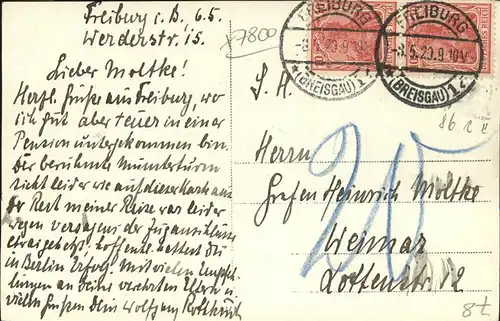 Freiburg i. B. 6.5.
Werderstr. 15.
x7800
FREIBURG
-8.5.20.9-10V.
*(BREISGAU)1z
FREIBURG
-8.5.20.9-10V.
*(BREISGAU)1z
Lieber Moltke!
Herzl. Grüße aus Freiburg, wo
ich gut aber teuer in einer
Pension untergekommen bin.
Der berühmte Münsterturm
sieht leider wie auf dieser Karte aus
der Rest meiner Reise war leider
wegen versagens der Zuganschlüsse
Hoffentl. hattest du
in Berlin Erfolg. Mit vielen Empfeh-
lungen an deine verehrten Eltern u.
vielen Grüßen dein Wolfgang
S. H.
Herrn
Grafen Heinrich Moltke
Weimar
Lottenstr. 12
20
86 c II
8t